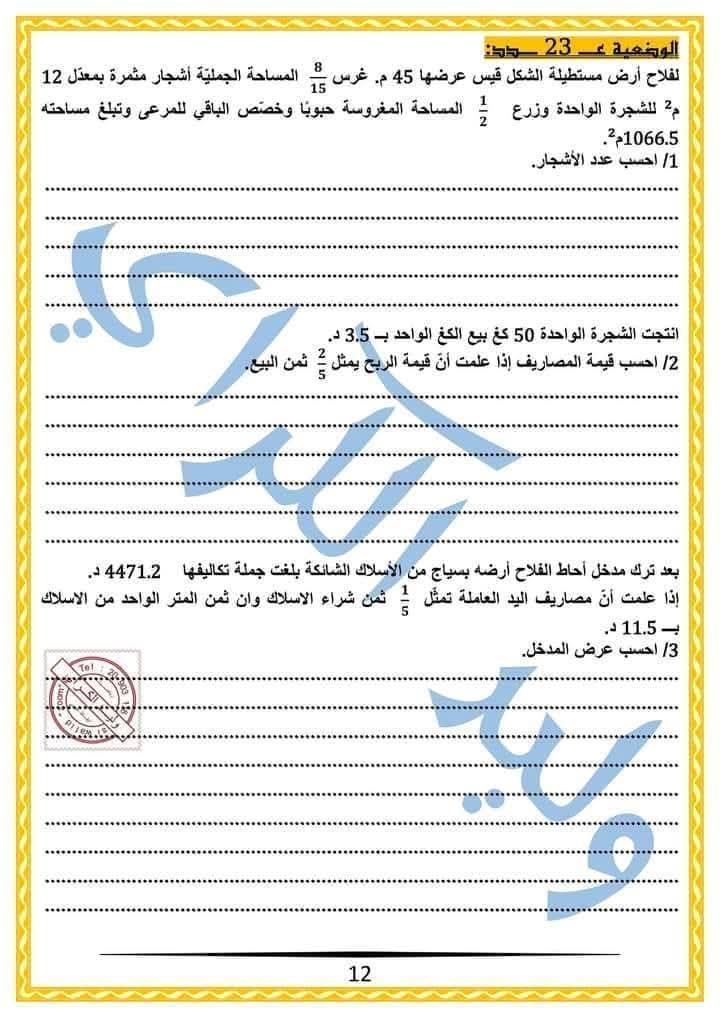 الوضعية عـــ 23 ـــدد:
لفلاح أرض مستطيلة الشكل قيس عرضها 45 م. غرس 8/15 المساحة الجمليّة أشجار مثمرة بمعدّل 12
م² للشجرة الواحدة وزرع 1/2 المساحة المغروسة حبوبًا وخصّص الباقي للمرعى وتبلغ مساحته
1066.5م².
1/ احسب عدد الأشجار.
انتجت الشجرة الواحدة 50 كغ بيع الكغ الواحد بــ 3.5 د.
2/ احسب قيمة المصاريف إذا علمت أنّ قيمة الربح يمثل 2/5 ثمن البيع.
بعد ترك مدخل أحاط الفلاح أرضه بسياج من الأسلاك الشائكة بلغت جملة تكاليفها 4471.2 د.
إذا علمت أنّ مصاريف اليد العاملة تمثّل 1/5 ثمن شراء الاسلاك وان ثمن المتر الواحد من الاسلاك
بــ 11.5 د.
3/ احسب عرض المدخل.
وليد الكراي
Tel : 20 903
12